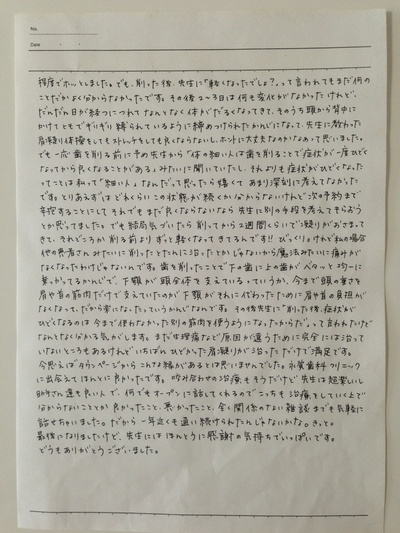 No.
Date
程度でホッとしました。でも、削った後、先生に「軽くなったでしょ?」って言われてもまだ何の
ことだかよく分からなかったです。その後2〜3日は何も変化がなかったけれど、
だんだん日が経つにつれてなんとなく体がだるくなってきて、そのうち頭から背中に
かけてともでギリギリ縛られているように締めつけられたかんじになって、先生に教わった
肩凝り体操をしてもストレッチをしても良くならないし、ホントに大丈夫なのかなあって思いました。
でも一応歯を削る前に予め先生から「体の細い人は歯を削ることで症状が一度ひどく
なってから良くなることがある」みたいに聞いていたし、それよりも症状がひどくなった
ってことは私って“細い人”なんだって思ったら嬉しくてあまり深刻に考えてなかった
です。とりあえずはどれくらいこの状態が続くか分からないけれど次の予約まで
辛抱することにしてそれでもまだ良くならないなら先生に別の手段を考えてもらおう
とか思ってました。でも結局気づいたら削ってから2週間くらいで凝りがおさまって
きて、それどころか削る前よりずっと軽くなってきてるんです!!びっくり。けれど私の場合
他の患者さんみたいに削ったとたんに治ったとかじゃないから魔法みたいに痛みが
なくなったわけじゃないんです。歯を削ったことで下の歯に上の歯がペタッと均一に
乗っかってるかんじで、下顎が頭全体を支えている。っていうか、今まで頭の重さを
肩や首の筋肉だけで支えていたのが下顎がそれに代わったために肩や首の負担が
なくなって、だから楽になったっていうかんじなんです。その後先生に「削った後、症状が
ひどくなるのは今まで使わなかった別の筋肉を使うようになったからだ。」って言われたけど
なんとなく分かる気がします。まだ生理痛など原因が違うために完全には治って
いないところもあるけれどいちばんひどかった肩凝りが治っただけで満足です。
今思えばタウンページからこんな縁があるとは思いませんでした。永質歯科クリニック
に出会えてほんとに良かったです。咬み合わせの治療もそうだけど先生は超楽しいし
助手さん達も良い人で、何でもオープンに話してくれるのでこっちも治療をしていく上で
分からないことや良かったこと、悪かったこと、全く関係のない雑談までも気軽に
話せちゃいました。だから一年近くも通い続けられたんじゃないかな。きっと。
最後になりましたけど、先生にはほんとうに感謝の気持ちでいっぱいです。
どうもありがとうございました。